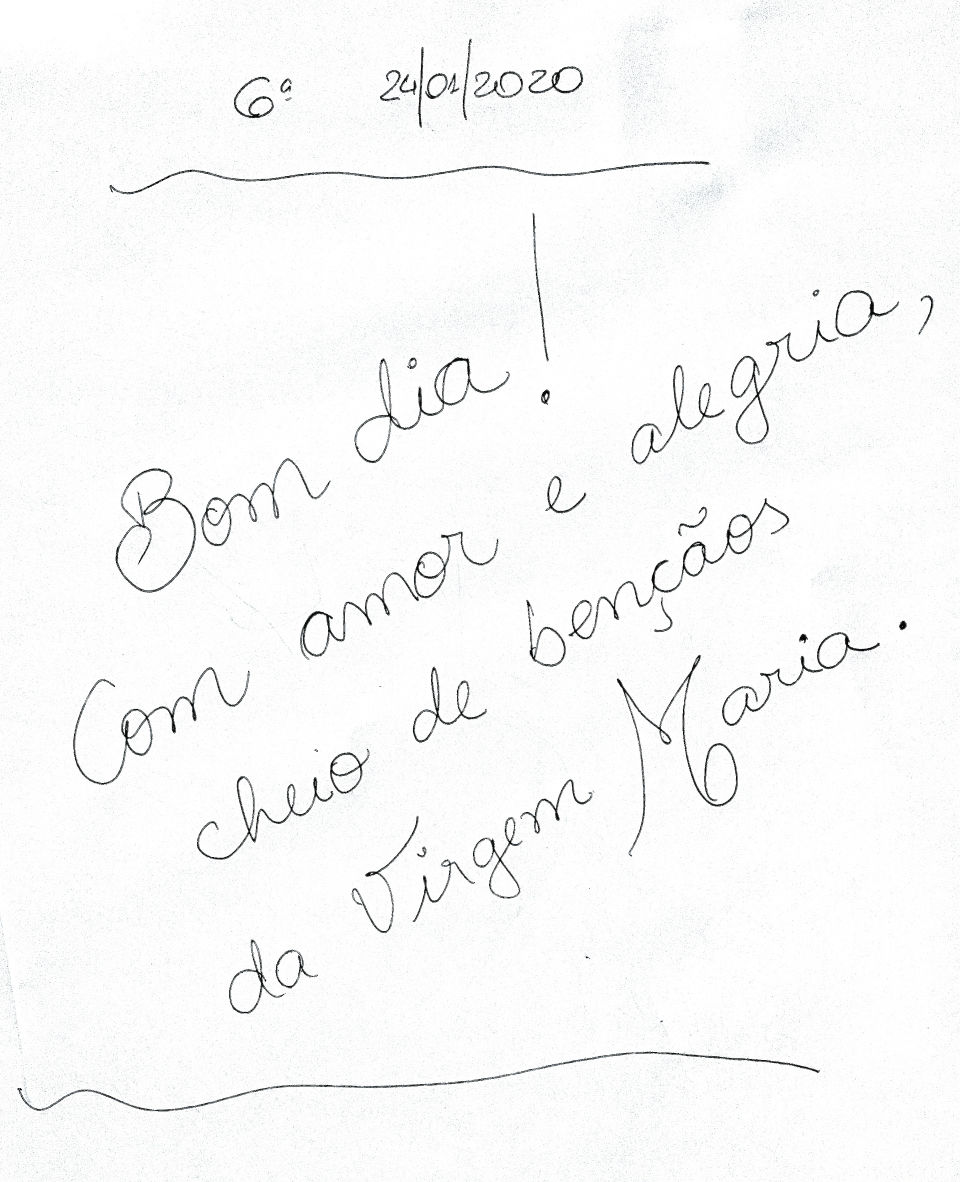 6ª 24/01/2020
Bom dia!
Com amor e alegria,
cheio de bençãos
da Virgem Maria.